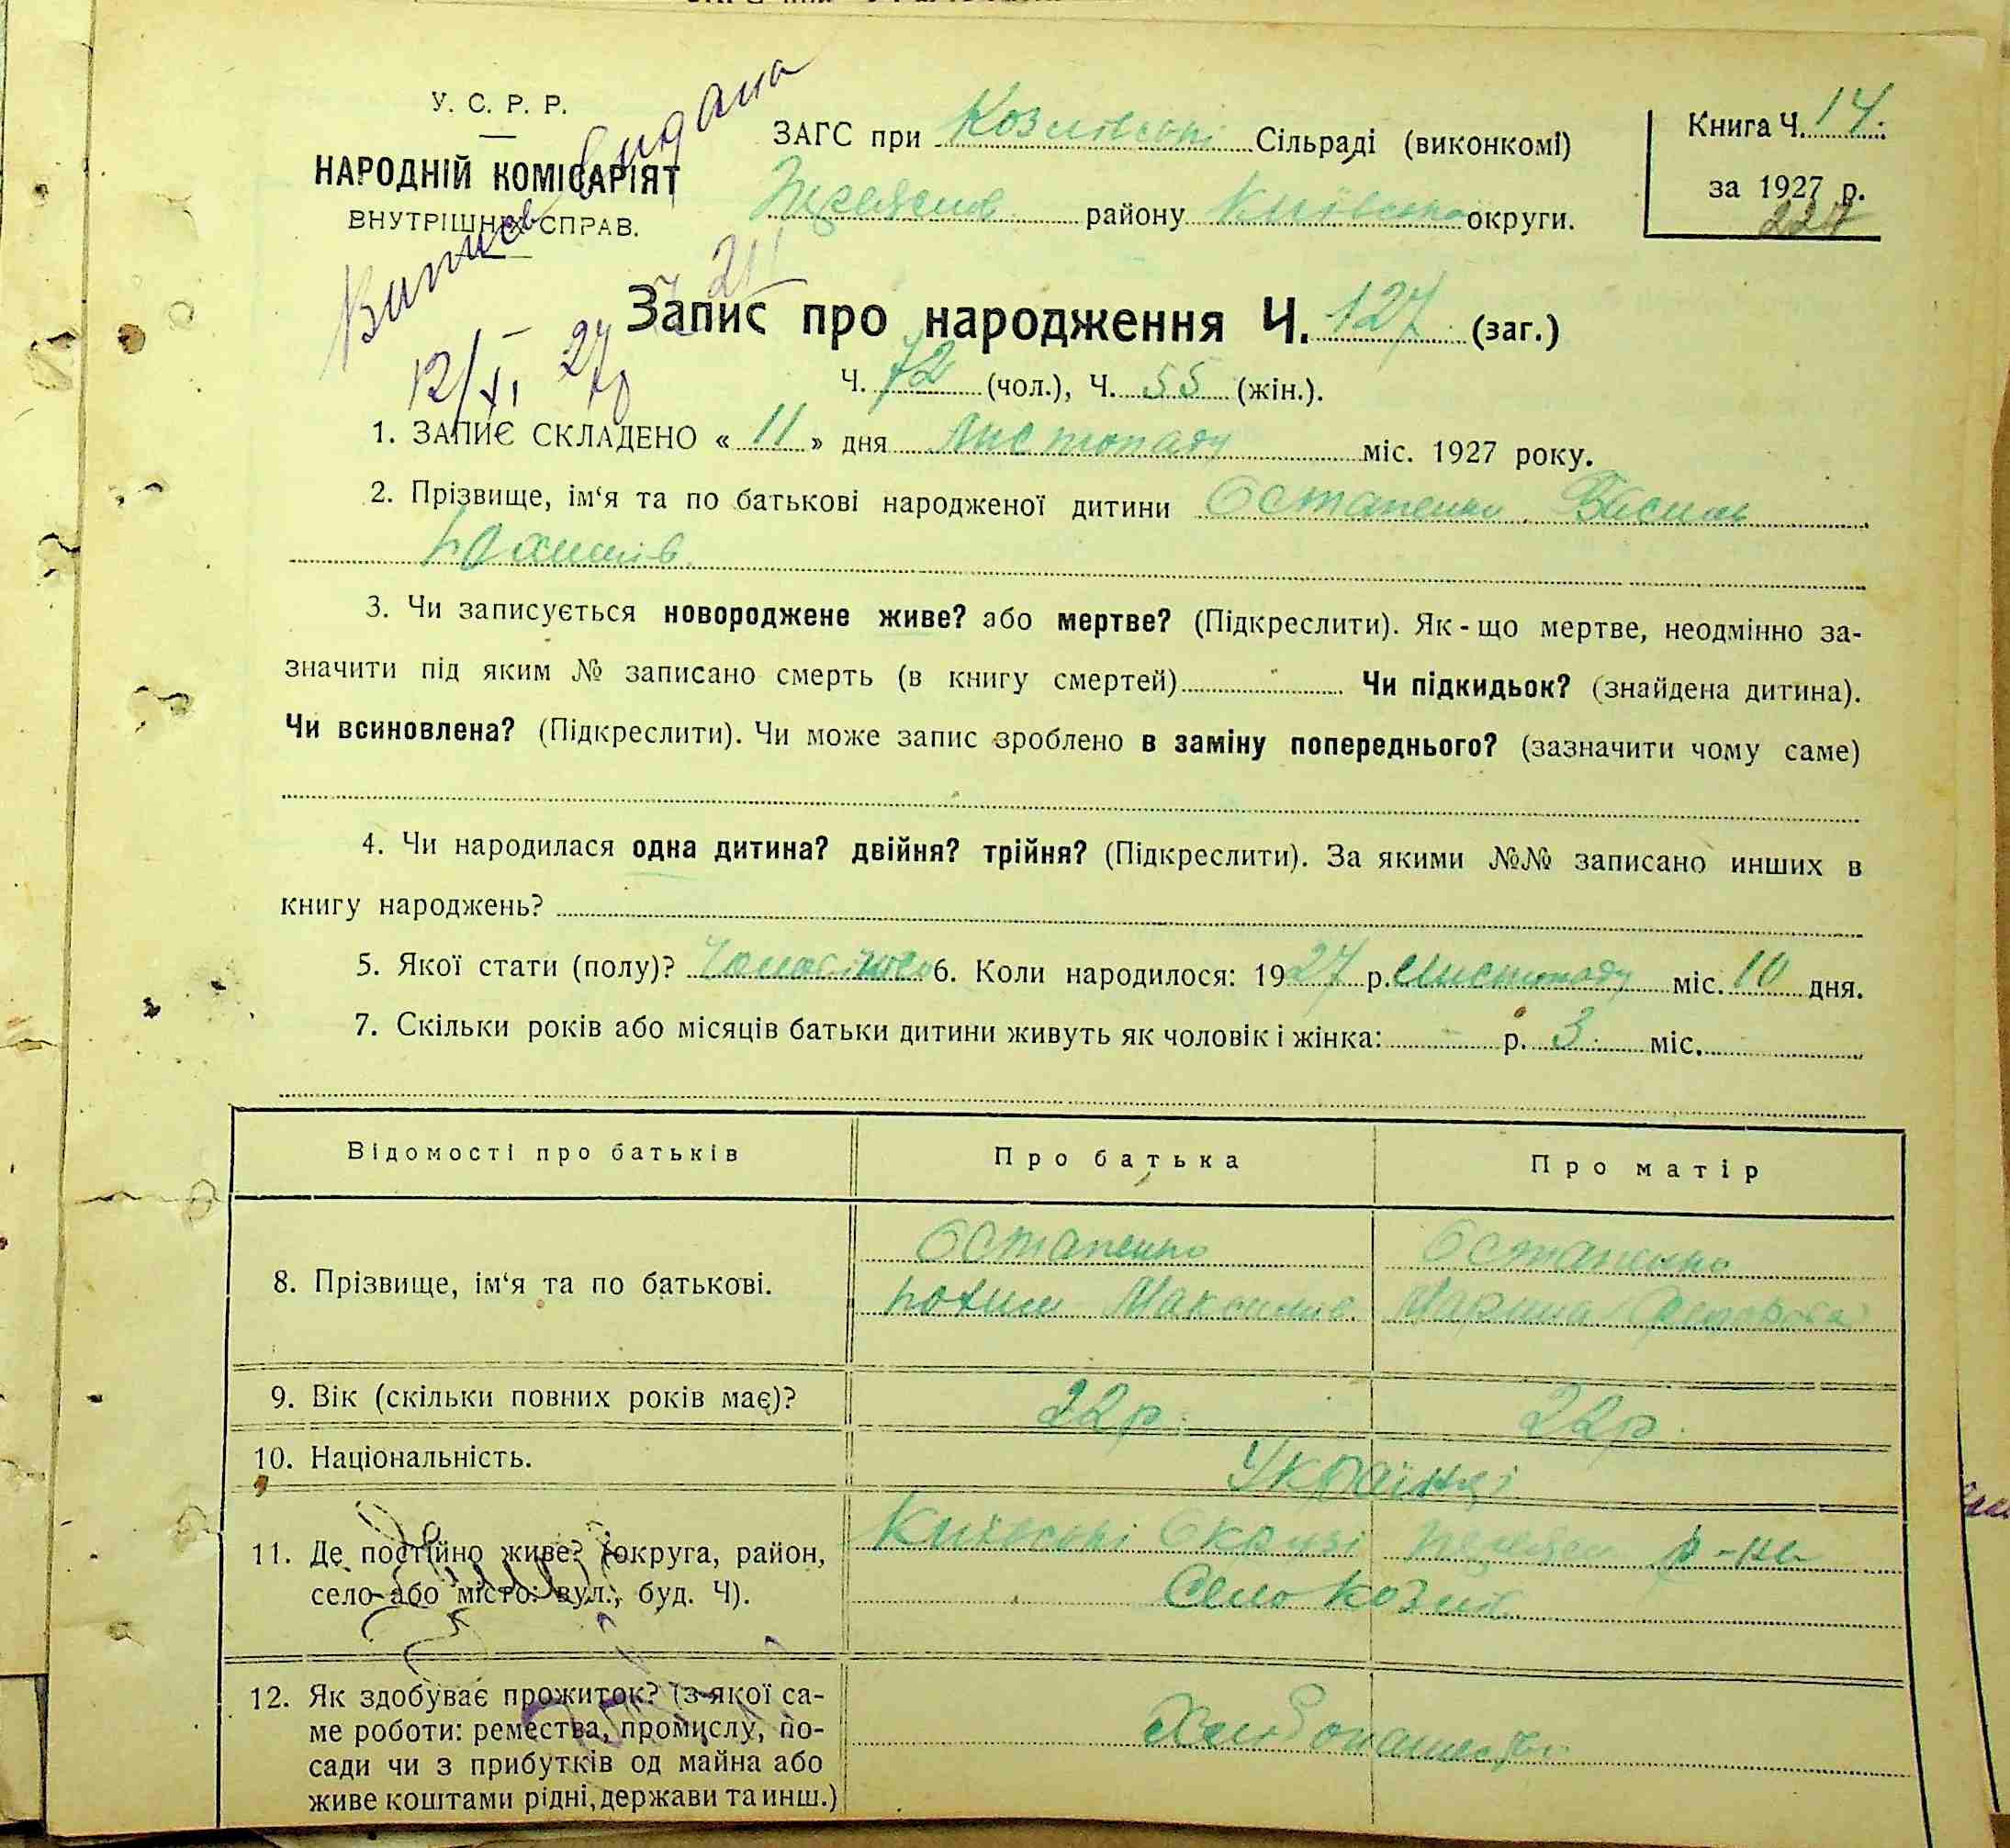 У. С. Р. Р.
НАРОДНІЙ КОМІСАРІЯТ
ВНУТРІШНІХ СПРАВ.
Випись видана
12/XI 27
ЗАГС при Козинській Сільраді (виконкомі)
Переяслів району Київської округи.
Книга Ч. 14.
за 1927 р.
227
Запис про народження Ч. 127 (заг.)
Ч. 72 (чол.), Ч. 55 (жін.).
1. ЗАПИС СКЛАДЕНО « 11 » дня Листопаду міс. 1927 року.
2. Прізвище, ім‘я та по батькові народженої дитини Остапенко Василь
Юхимів.
3. Чи записується новороджене живе? або мертве? (Підкреслити). Як-що мертве, неодмінно за-
значити під яким № записано смерть (в книгу смертей) Чи підкидьок? (знайдена дитина).
Чи всиновлена? (Підкреслити). Чи може запис зроблено в заміну попереднього? (зазначити чому саме)
4. Чи народилася одна дитина? двійня? трійня? (Підкреслити). За якими №№ записано инших в
книгу народжень?
5. Якої стати (полу)? Чоловічого 6. Коли народилося: 1927 р. Листопаду міс. 10 дня.
7. Скільки років або місяців батьки дитини живуть як чоловік і жінка: – р. 3 міс.
Відомості про батьків Про батька Про матір
8. Прізвище, ім‘я та по батькові.
Остапенко Остапенко
Юхим Максимів. Марина Федорова
9. Вік (скільки повних років має)? 22р. 22р.
10. Національність. Українці
11. Де постійно живе? (округа, район,
село або місто: вул., буд. Ч).
Київській Окрузі Переясл р-на
Село Козин.
12. Як здобуває прожиток? (з якої са-
ме роботи: ремества, промислу, по-
сади чи з прибутків од майна або
живе коштами рідні, держави та инш.)